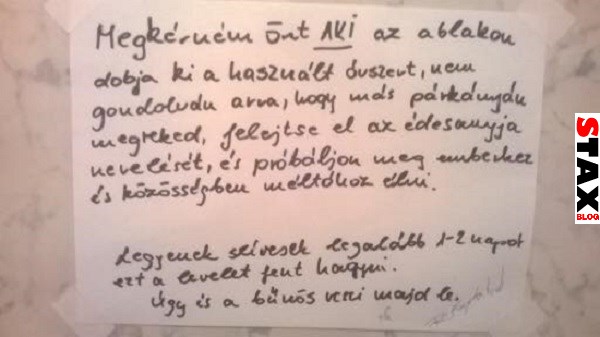 Megkérném önt AKI az ablakon
dobja ki a használt óvszert, nem
gondolván arra, hogy más párkányán
megreked, felejtse el az édesanyja
nevelését, és próbáljon meg emberhez
és közösségben méltóhoz élni.
Legyenek szívesek legalább 1-2 napot
ezt a levelet fent hagyni.
Úgy is a bűnös veszi majd le.
STAX
BLOG